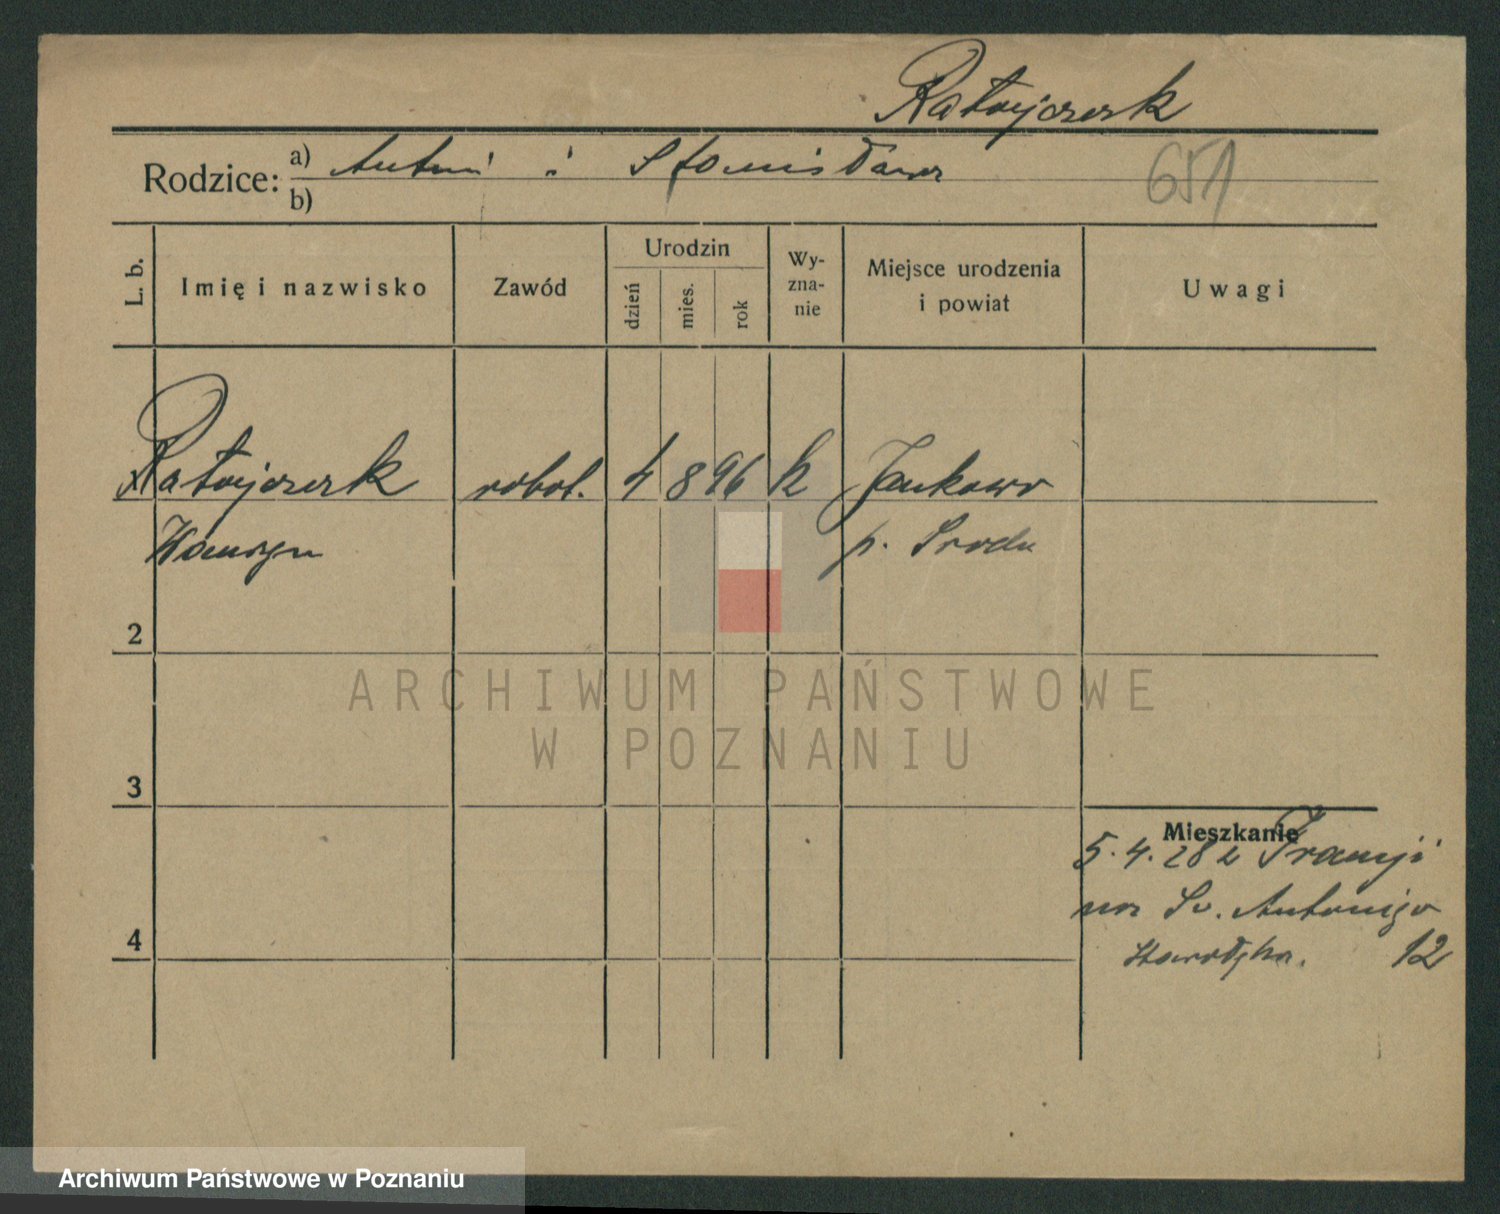 Ratajczak
Rodzice: a) Antoni i Stanisława
b)
651
L. b.
Imię i nazwisko
Zawód
Urodzin
dzień
mies.
rok
Wy-
zna-
nie
Miejsce urodzenia
i powiat
Uwagi
Ratajczak robot. 4 8 96 k Jankowo
p. Środa
2
3
4
Mieszkanie
5.4.28 z Francji
na Św. Antoniego
Starołęka. 12
ARCHIWUM PAŃSTWOWE
W POZNANIU
Archiwum Państwowe w Poznaniu